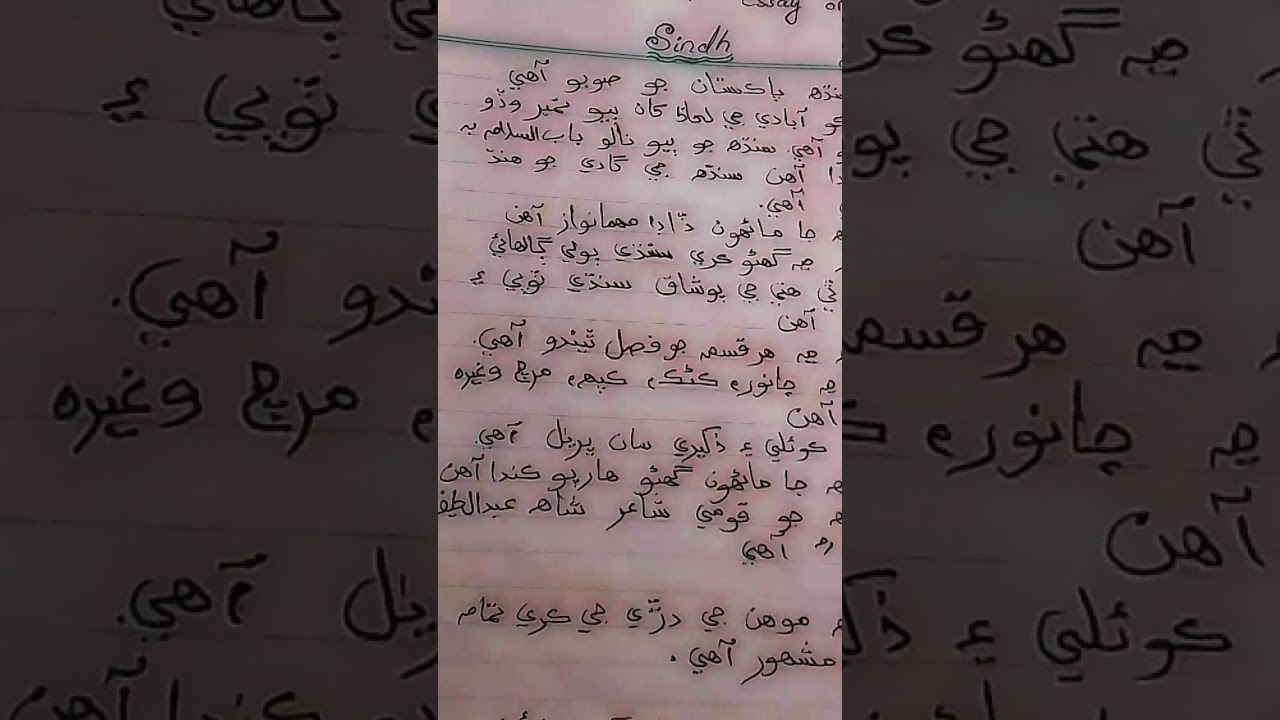 Essay on
Sindh
پاڪستان جو صوبو آهي
آبادي جي لحاظ کان ٻيو نمبر وڏو
آهي. سنڌ جو ٻيو نالو باب السلام به
آهن سنڌ جي گادي جو هنڌ
آهي.
جا ماڻهون ڏاڍا مهمانواز آهن
۾ گهڻو ڪري سنڌي ٻولي ڳالهائي
ٿي هتي جي پوشاق سنڌي ٽوپي ۽
آهن
۾ هر قسم جو فصل ٿيندو آهي.
۾ چانور، ڪڻڪ، ڪپهه، مرچ وغيره
آهن
ڪوئلي ۽ ذکيري سان ڀريل آهي.
جا ماڻهون گهڻو هارپو ڪندا آهن
جو قومي شاعر شاهه عبدالطيف
آهي
موهن جي دڙي جي ڪري تمام
مشهور آهي.